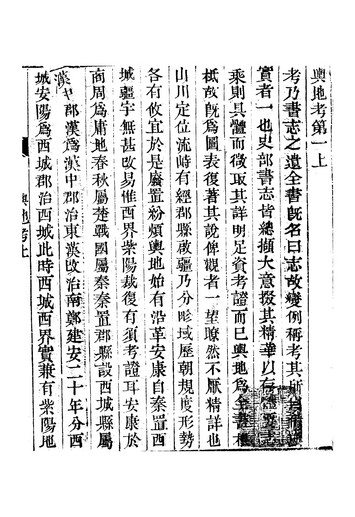 輿地考第一上
考乃書志之遺全書旣名曰志故變例稱考其所
實者一也史部書志皆總擷大意掇其精華以存
乘則具體而徵取其詳明足資考證而已輿地爲全書
柢故旣爲圖表復著其說俾觀者一望瞭然不厭精詳也
山川定位流峙有經郡縣啟疆乃分畛域歷朝規度形勢
各有攸宜於是廢置紛煩輿地始有沿革安康自秦置西
城疆宇無甚改易惟西界紫陽裁復有須考證耳安康於
商周爲庸地春秋屬楚戰國屬秦秦置郡縣設西城縣屬
漢中郡漢爲漢中郡治東漢改治南鄭建安二十年分西
城安陽爲西城郡治西城此時西城西界實兼有紫陽地
輿地考上